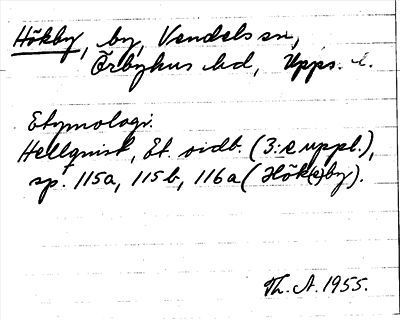 Hökby, by, Vendels sn,
Örbyhus hd, Upps. l.
Etymologi.
Hellquist, Et. ordb. (3:e uppl.),
sp. 115a, 115b, 116a (Hök(e)by).
Th. A. 1955.